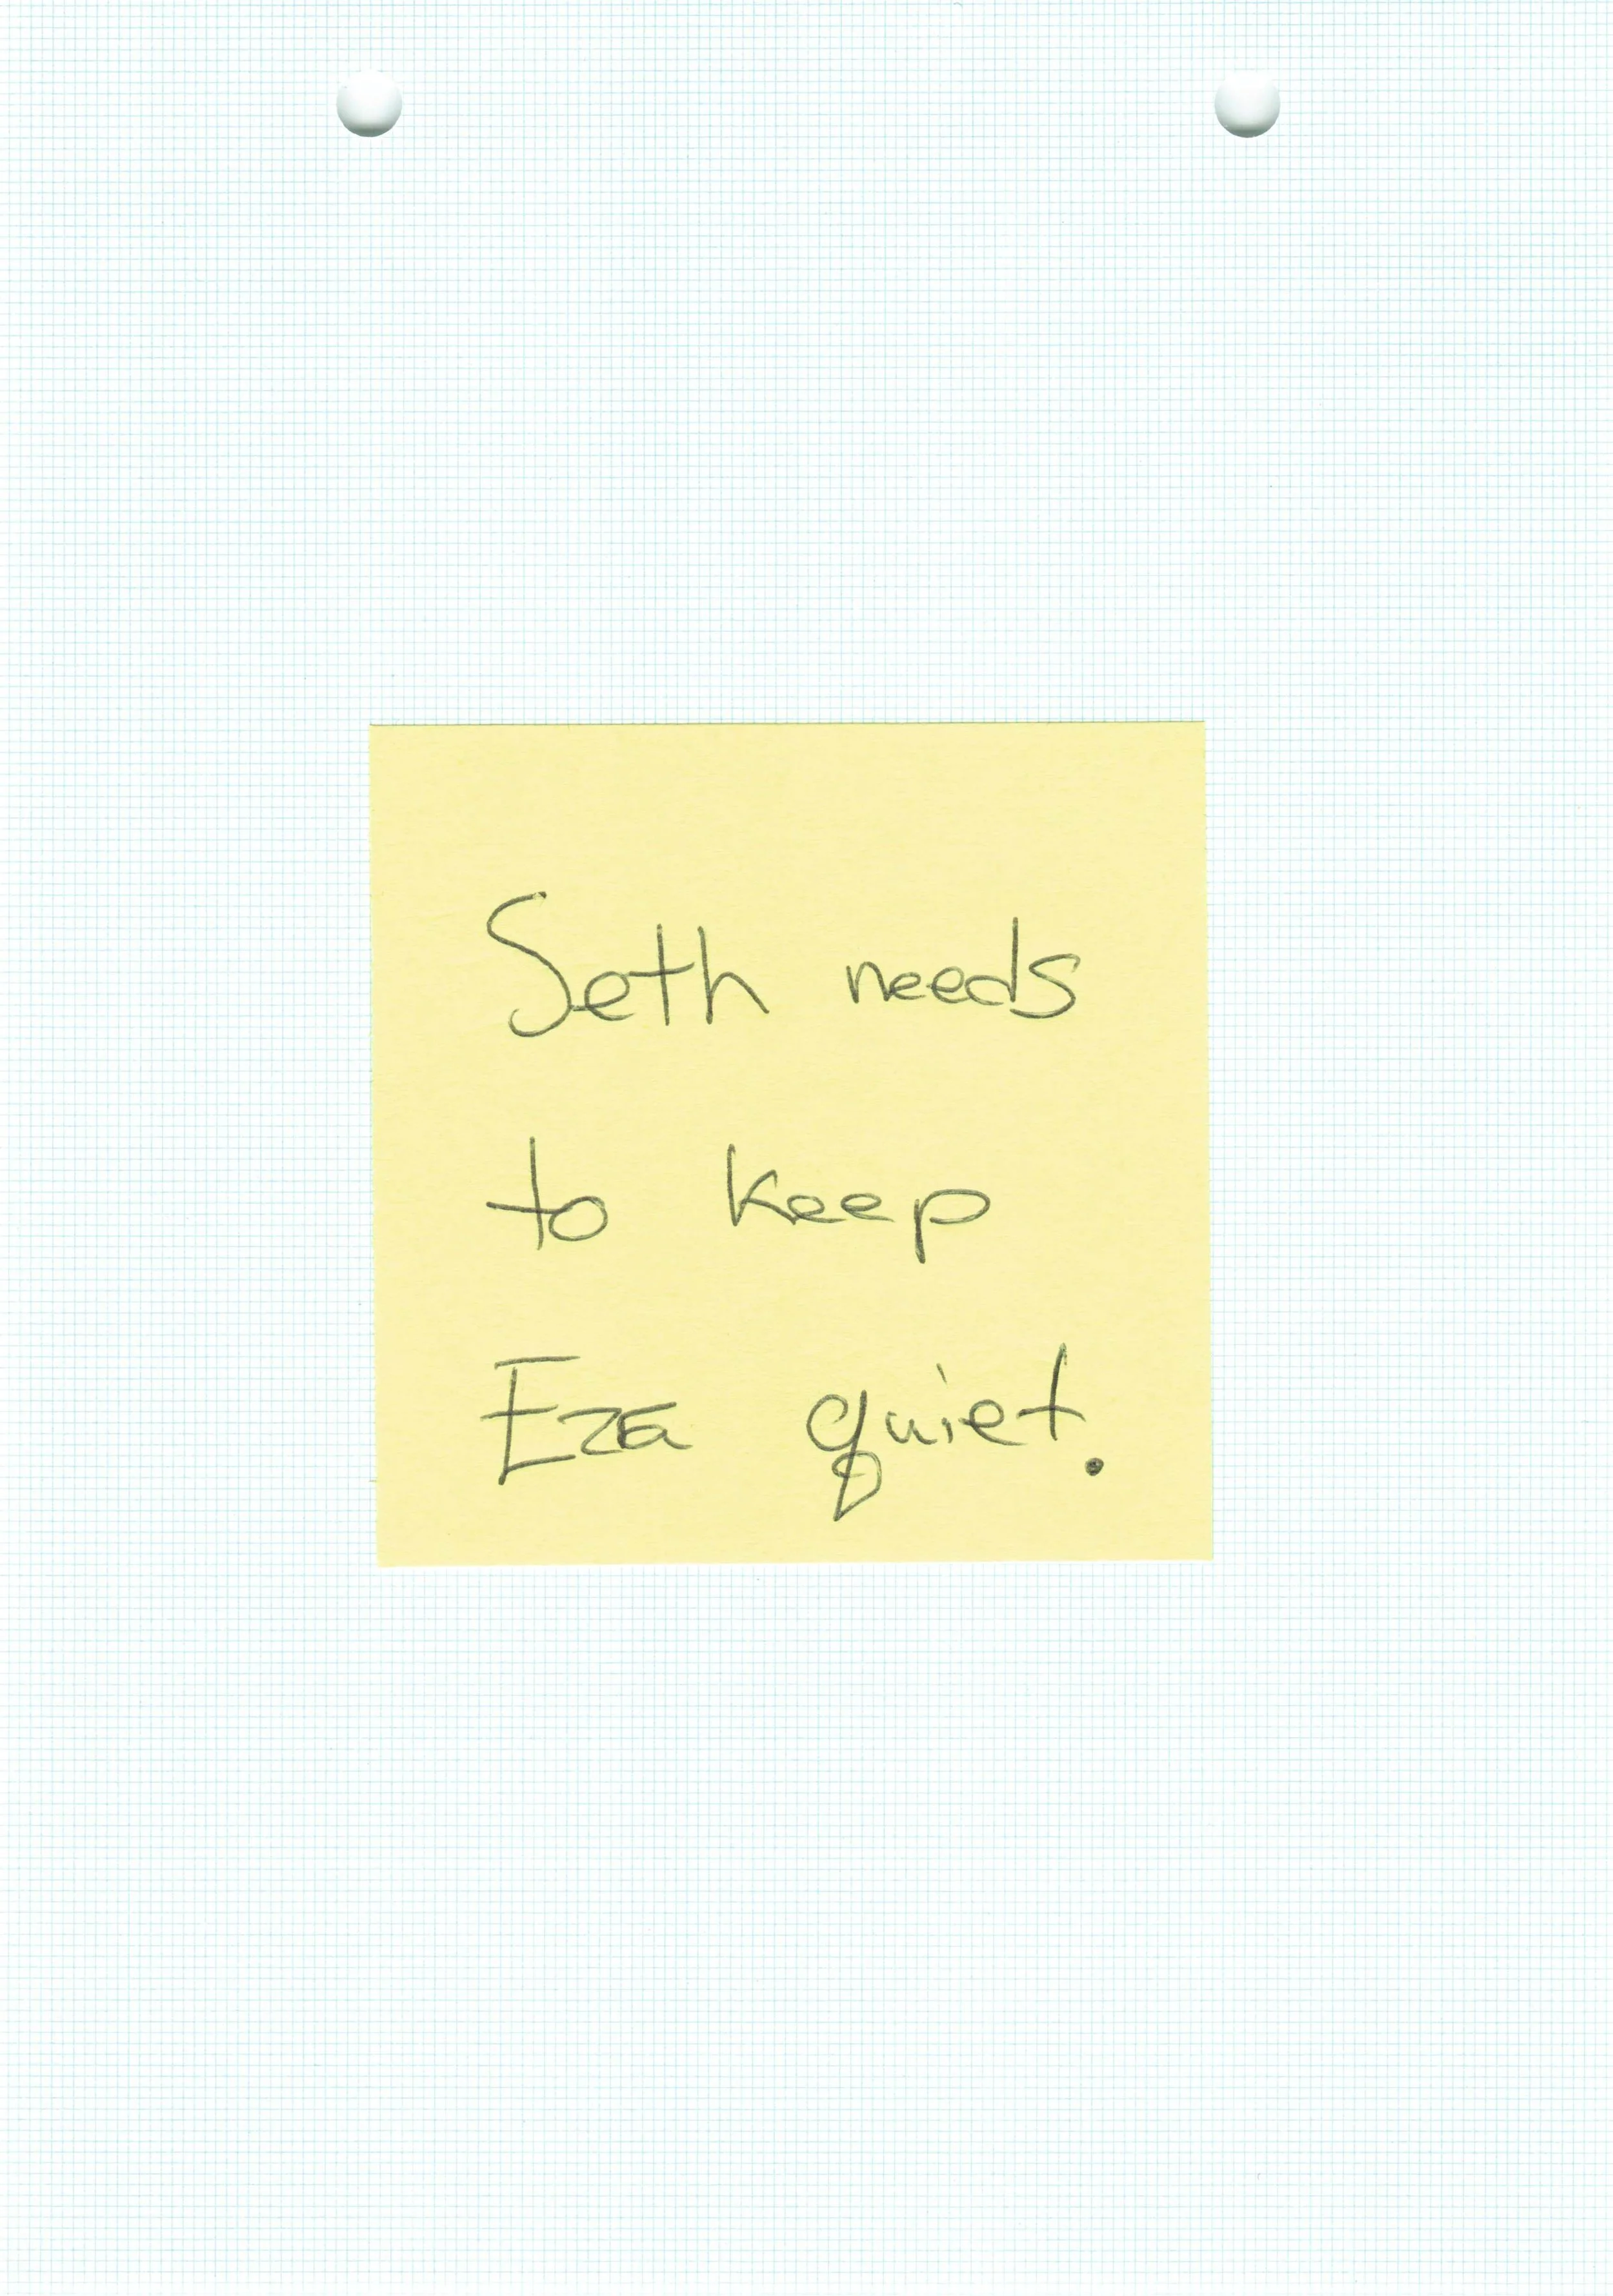 Seth needs
to keep
Eza quiet.